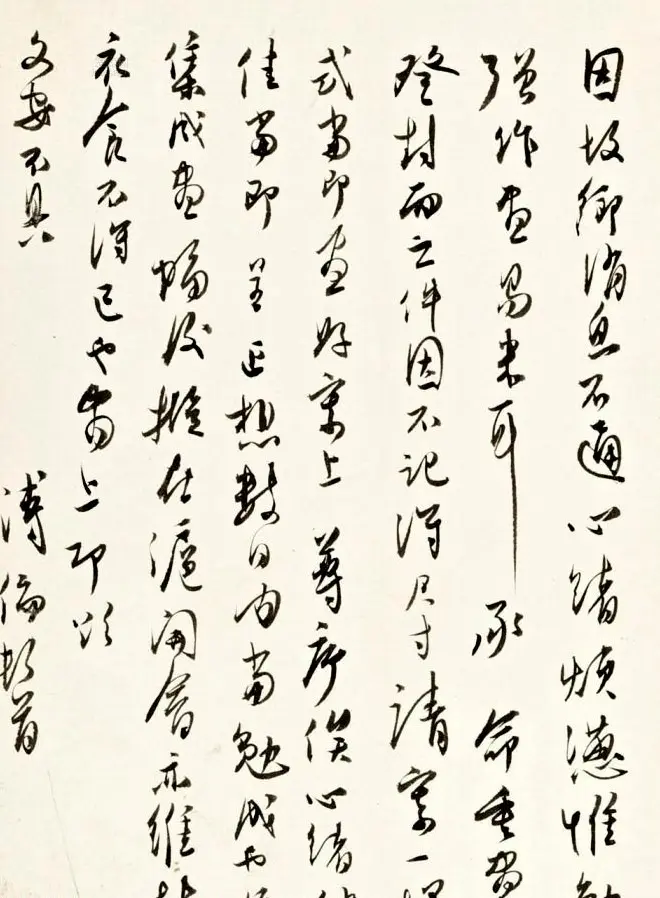 因故鄉消息不通心緒煩懣惟勉
強作畫易米耳承命重書
登封而立件因不記得尺寸請寄一
式當即畫好寄上尊齋俟心緒
佳當即呈正想數日內當勉成也
集成畫幅後擬在滬開會亦維持
衣食不得已也耑上即頌
文安不具
溥儒頓首